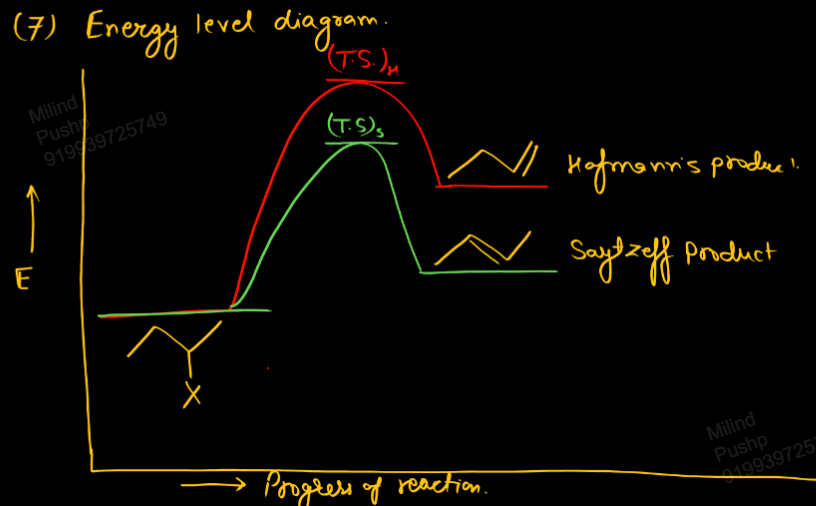 (7) Energy level diagram.
(T.S.)H
(T.S)s
Hofmann's
Saytzeff Product
E
X
Progress of reaction.
Milind
Pushp
919939725749
Milind
Pushp